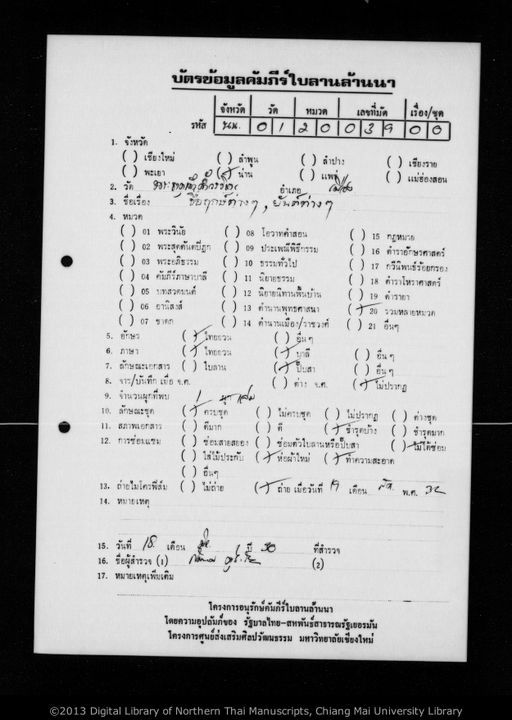 บัตรข้อมูลคัมภีร์ใบลานล้านนา
จังหวัด วัด หมวด เลขที่มัด เรื่อง/ชุด
รหัส นน. 0 1 2 0 0 3 9 0 0
1. จังหวัด
( ) เชียงใหม่ ( ) ลำพูน ( ) ลำปาง ( ) เชียงราย
( ) พะเยา (/) น่าน ( ) แพร่ ( ) แม่ฮ่องสอน
2. วัด อำเภอ
3. ชื่อเรื่อง ชื่อฤกษ์ต่าง ๆ , ยันต์ต่าง ๆ
4. หมวด
( ) 01 พระวินัย ( ) 08 โอวาทคำสอน ( ) 15 กฎหมาย
( ) 02 พระสุตตันตปิฎก ( ) 09 ประเพณีพิธีกรรม ( ) 16 ตำราอักษรศาสตร์
( ) 03 พระอภิธรรม ( ) 10 ธรรมทั่วไป ( ) 17 กวีนิพนธ์ร้อยกรอง
( ) 04 คัมภีร์ภาษาบาลี ( ) 11 นิยายธรรม ( ) 18 ตำราโหราศาสตร์
( ) 05 บทสวดมนต์ ( ) 12 นิยายนิทานพื้นบ้าน ( ) 19 ตำรายา
( ) 06 อานิสงส์ ( ) 13 ตำนานพุทธศาสนา (/) 20 รวมหลายหมวด
( ) 07 ชาดก ( ) 14 ตำนานเมือง/ราชวงศ์ ( ) 21 อื่นๆ
5. อักษร (/) ไทยยวน ( ) อื่น ๆ
6. ภาษา (/) ไทยยวน (/) บาลี ( ) อื่น ๆ
7. ลักษณะเอกสาร ( ) ใบลาน (/) ปั๊บสา ( ) อื่น ๆ
8. จาร/บันทึก เมื่อ จ.ศ. ( ) ต่าง จ.ศ. (/) ไม่ปรากฏ
9. จำนวนผูกที่พบ 1
10. ลักษณะชุด (/) ครบชุด ( ) ไม่ครบชุด ( ) ไม่ปรากฏ ( ) ต่างชุด
11. สภาพเอกสาร ( ) ดีมาก ( ) ดี (/) ชำรุดบ้าง ( ) ชำรุดมาก
12. การซ่อมแซม ( ) ซ่อมสายสยอง ( ) ซ่อมตัวใบลานหรือปั๊บสา (/) ไม่ได้ซ่อม
( ) ใส่ไม้ประกับ (/) ห่อผ้าใหม่ (/) ทำความสะอาด
( ) อื่นๆ
13. ถ่ายไมโครฟิล์ม ( ) ไม่ถ่าย (/) ถ่าย เมื่อวันที่ 19 เดือน พ.ศ. 32
14. หมายเหตุ
15. วันที่ 18 เดือน ปี 30 ที่สำรวจ
16. ชื่อผู้สำรวจ (1) (2)
17. หมายเหตุเพิ่มเติม
โครงการอนุรักษ์คัมภีร์ใบลานล้านนา
โดยความอุปถัมภ์ของ รัฐบาลไทย-สหพันธ์สาธารณรัฐเยอรมัน
โครงการศูนย์ส่งเสริมศิลปวัฒนธรรม มหาวิทยาลัยเชียงใหม่
©2013 Digital Library of Northern Thai Manuscripts, Chiang Mai University Library